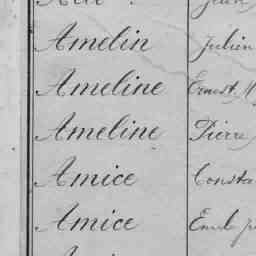 Amelin Julien
Ameline Ernest
Ameline Pierre
Amice Consta
Amice Emile